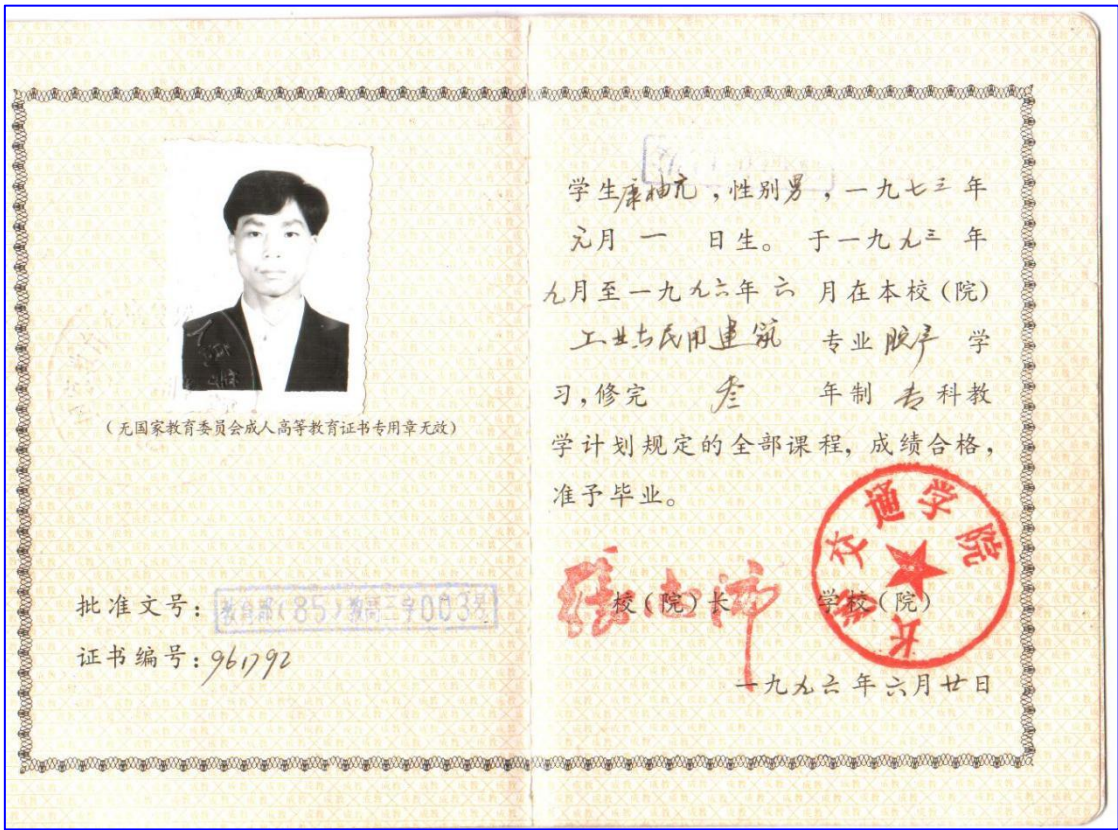 (无国家教育委员会成人高等教育证书专用章无效)
批准文号: 教育部(85)教高三字003号
证书编号: 961792
学生康柚亢,性别男,一九七三年
元月一日生。于一九九三年
九月至一九九六年六月在本校(院)
工业与民用建筑 专业脱产学
习,修完 叁 年制专科教
学计划规定的全部课程,成绩合格,
准予毕业。
校(院)长
学校(院)
长沙交通学院
一九九六年六月廿日